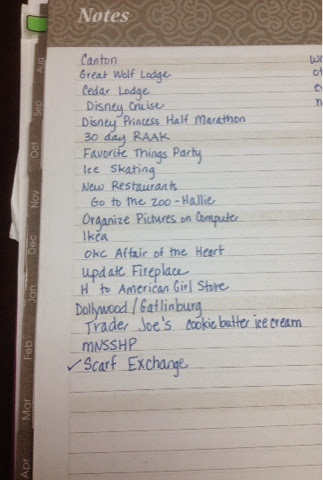 Notes
Canton
Great Wolf Lodge
Cedar Lodge
Disney Cruise
Disney Princess Half Marathon
30 day RAAK
Favorite Things Party
Ice Skating
New Restaurants
Go to the Zoo - Hallie
Organize Pictures on Compute
Ikea
OKC Affair of the Heart
Update Fireplace
H to American Girl Store
Dollywood / Gatlinburg
Trader Joe's cookie butter ice cream
MNSSHP
✓ Scarf Exchange
Aug
Sep
Oct
Nov
Dec
Jan
Feb
Mar
Apr